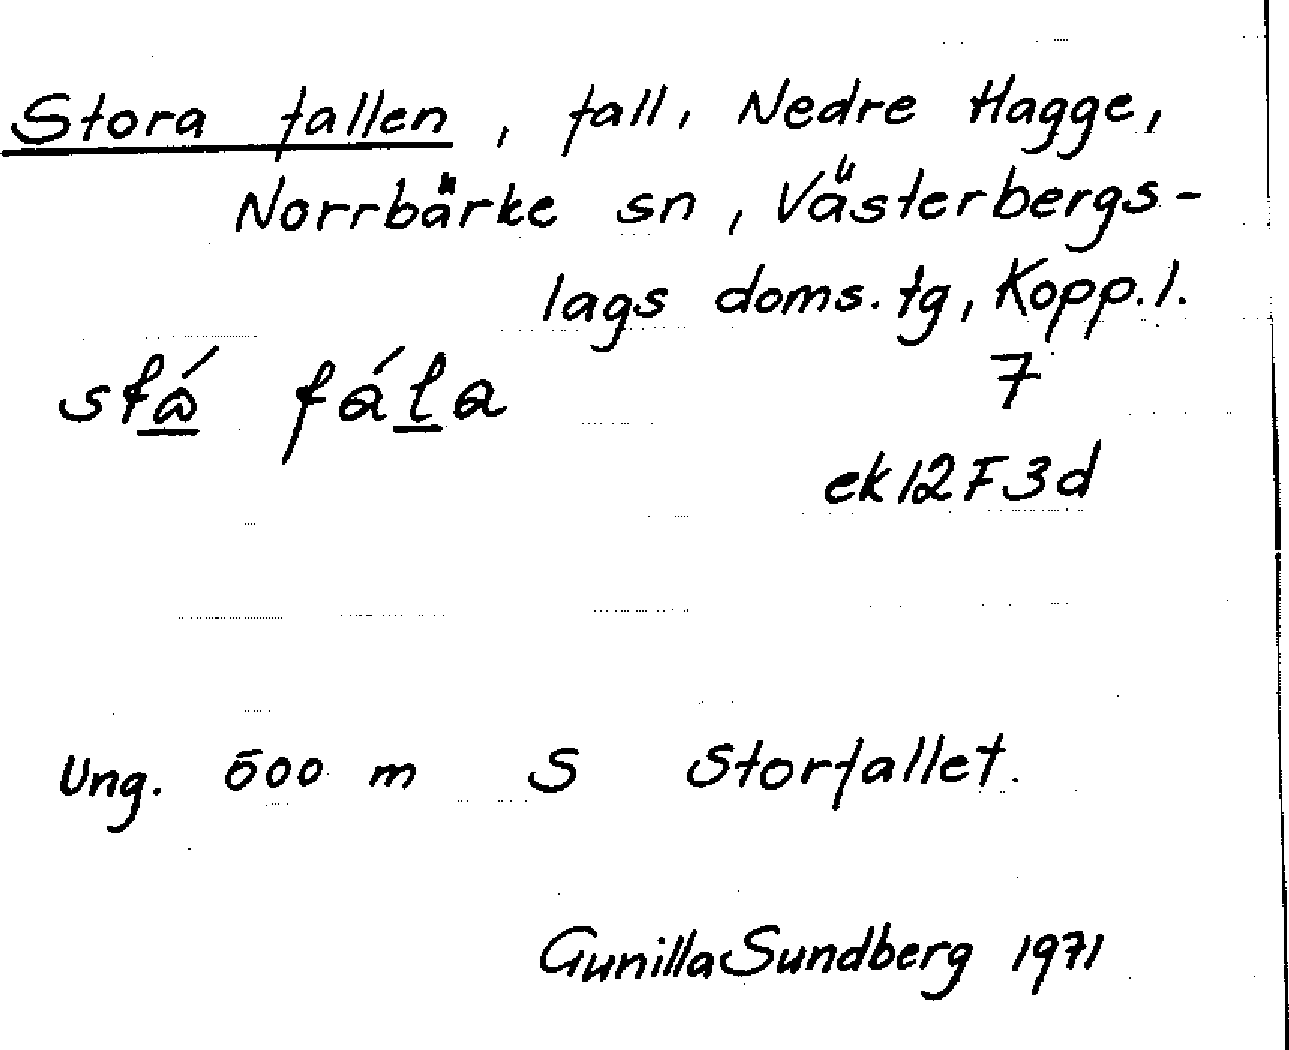 Stora fallen, fall, Nedre Hagge,
Norrbärke sn, Västerbergs-
lags doms. tg, Kopp. l.
fála 7
ek12F3d
Ung. 500 m S Storfallet.
Gunilla Sundberg 1971